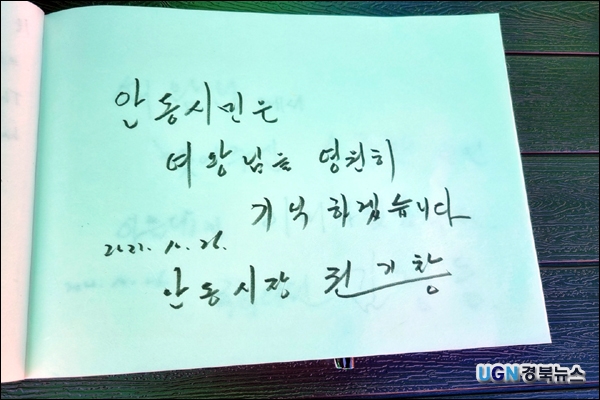 안동시민은
여왕님을 영원히
기억하겠습니다
안동시장 권기창
UGN경북뉴스